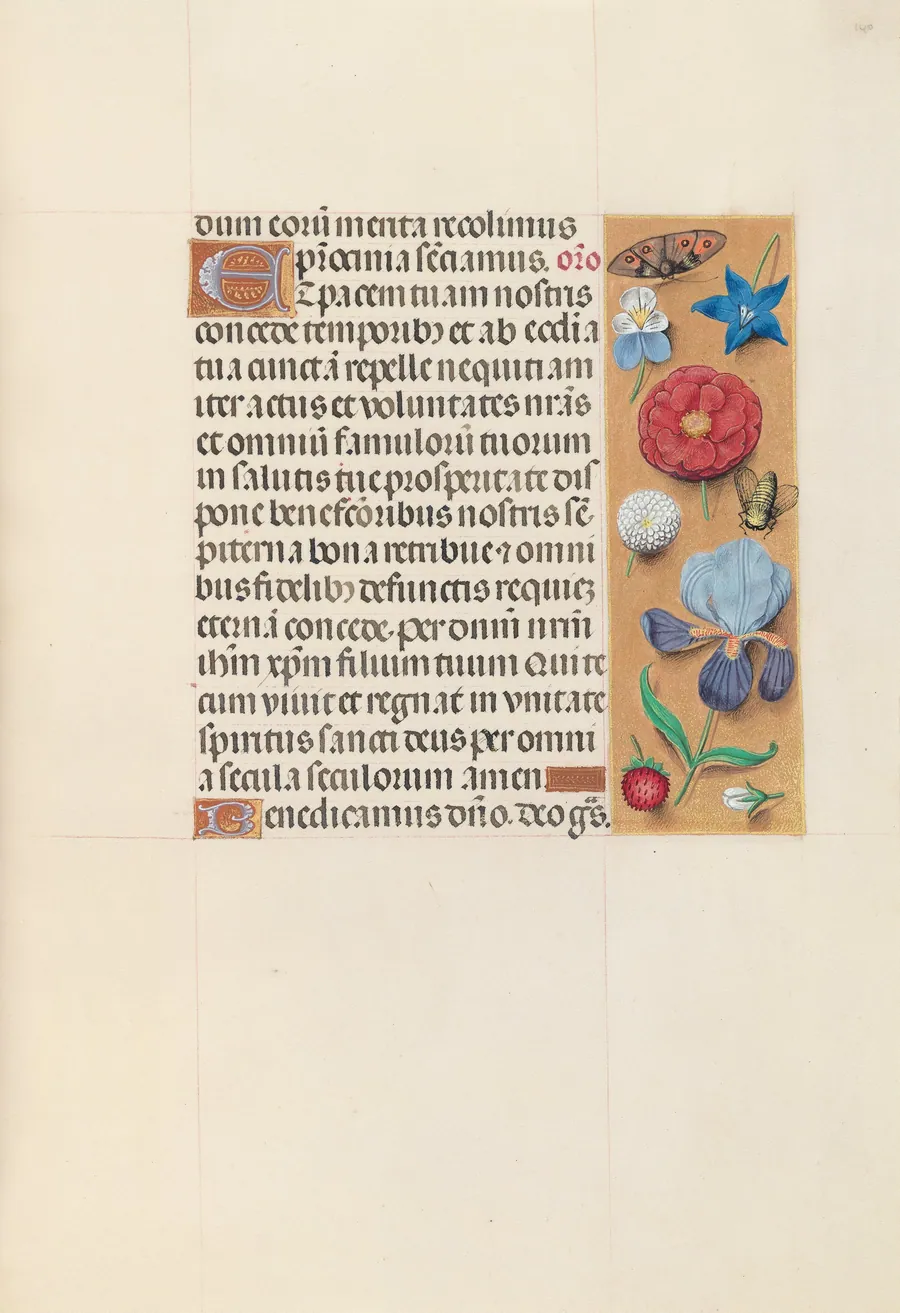 140
dum corū merita recolimus
pr̄ocinia sēciamus. orō
Et pacem tuam nostris
concede temporibꝫ et ab ecclīa
tua cunctā repelle nequitiam
iter actus et voluntates nrās
et omniū famulorū tuorum
in salutis tue prosperitate dis
pone benefc̄oribus nostris sē
piterna bona retribue ⁊ omni
bus fidelibꝫ defunctis requiēꝫ
eternā concede. per dnm̄ nrm̄
ihm̄ xp̄m filium tuum Qui te
cum viuit et regnat in vnitate
spiritus sancti deus per omni
a secula seculorum amen
Benedicamus dn̄o. deo gās.